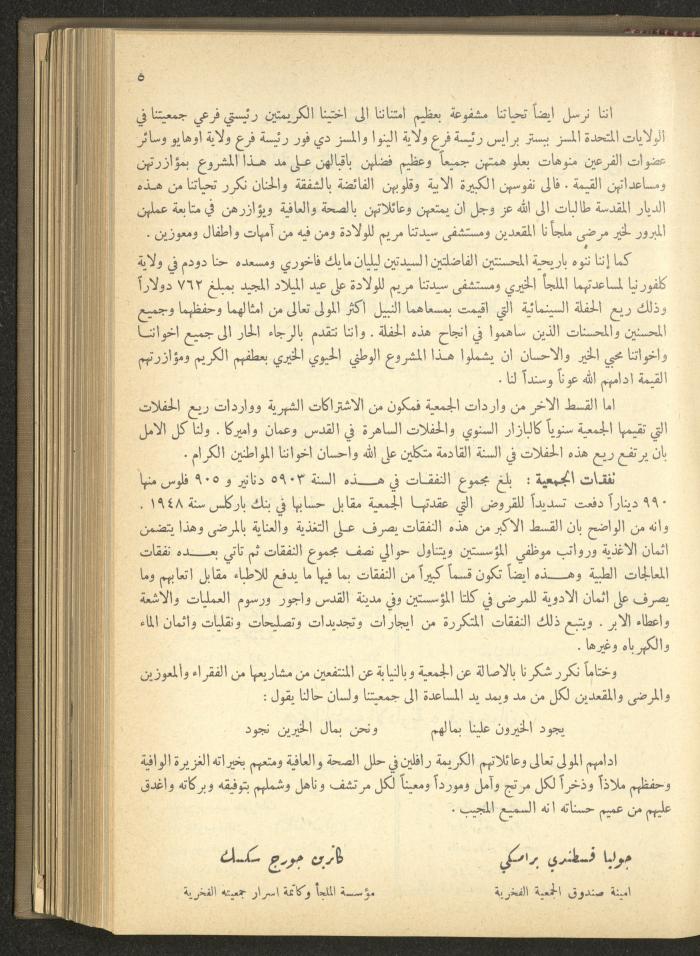 ٥
اننا نرسل ايضاً تحياتنا مشفوعة بعظيم امتناننا الى اختينا الكريمتين رئيستي فرعي جمعيتنا في
الولايات المتحدة المسز بيستر برايس رئيسة فرع ولاية الينوا والمسز دي فور رئيسة فرع ولاية اوهايو وسائر
عضوات الفرعين منوهات بعلو همتهن جميعاً وعظيم فضلهن باقبالهن عـلى مد هـذا المشروع بمؤازرتهن
ومساعداتهن القيمة . فالى نفوسهن الكبيرة الابية وقلوبهن الفائضة بالشفقة والحنان نكرر تحياتنا من هـذه
الديار المقدسة طالبات الى الله عز وجل ان يمتعهن وعائلاتهن بالصحة والعافية ويؤازرهن في متابعة عملهن
المبرور لخير مرضى ملجأنا المقعدين ومستشفى سيدتنا مريم للولادة ومن فيه من أمهات واطفال ومعوزين .
كما إننا ننُوه باريحية المحسنتين الفاضلتين السيدتين ليليان مايك فاخوري ومسعده حنا دودم في ولاية
كلفورنيا لمساعدتهما الملجأ الخيري ومستشفى سيدتنا مريم للولادة على عيد الميلاد المجيد بمبلغ ٧٦٢ دولاراً
وذلك ريع الحفلة السينمائية التي اقيمت بمسعاهما النبيل اكثر المولى تعالى من امثالهما وحفظهما وجميع
المحسنين والمحسنات الذين ساهموا في انجاح هذه الحفلة . واننا نتقدم بالرجاء الحار الى جميع اخواننـا
واخواتنا محبي الخير والاحسان ان يشملوا هـذا المشروع الوطني الحيوي الخيري بعطفهم الكريم ومؤازرتهم
القيمة ادامهم الله عوناً وسنداً لنا .
اما القسط الاخر من واردات الجمعية فمكون من الاشتراكات الشهرية وواردات ريـع الحفلات
التي تقيمها الجمعية سنوياً كالبازار السنوي والحفلات الساهرة في القدس وعمان واميركا . ولنا كل الامل
بان يرتفع ريع هذه الحفلات في السنة القادمة متكلين على الله واحسان اخواننا المواطنين الكرام .
نفقـات الجمعية : بلغ مجموع النفقـات في هـذه السنة ٥٩٠٣ دنانير و ٩٠٥ فلوس منها
٩٩٠ ديناراً دفعت تسديداً للقروض التي عقدتهـا الجمعية مقابل حسابها في بنك باركلس سنة ١٩٤٨ .
وانه من الواضح بان القسط الاكبر من هذه النفقات يصرف عـلى التغذية والعناية بالمرضى وهذا يتضمن
اثمان الاغذية ورواتب موظفي المؤسستين ويتناول حوالي نصف مجموع النفقات ثم تاتي بعـــده نفقات
المعالجات الطبية وهـــذه ايضاً تكون قسماً كبيراً من النفقات بما فيها ما يدفع للاطباء مقابل اتعابهم وما
يصرف على اثمان الادوية للمرضى في كلتا المؤسستين وفي مدينة القدس واجور ورسوم العمليات والاشعة
واعطاء الابر . ويتبع ذلك النفقات المتكررة من ايجارات وتجديدات وتصليحات ونقليات واثمان الماء
والكهرباه وغيرها .
وختاماً نكرر شكرنا بالاصالة عن الجمعية وبالنيابة عن المنتفعين من مشاريعها من الفقراء والمعوزين
والمرضى والمقعدين لكل من مد ويمد يد المساعدة الى جمعيتنا ولسان حالنا يقول :
يجود الخيرون علينا بمالهم ونحن بمال الخيرين نجود
ادامهم المولى تعالى وعائلاتهم الكريمة رافلين في حلل الصحة والعافية ومتعهم بخيراته الغزيرة الوافية
وحفظهم ملاذاً وذخراً لكل مرتج وآمل ومورداً ومعيناً لكل مرتشف وناهل وشملهم بتوفيقه وبركاته واغدق
عليهم من عميم حسناته انه السميع المجيب .
جوليا قسطندي برامكي كاترين جورج سكسك
امينة صندوق الجمعية الفخرية مؤسسة الملجأ وكاتمة اسرار جمعيته الفخرية